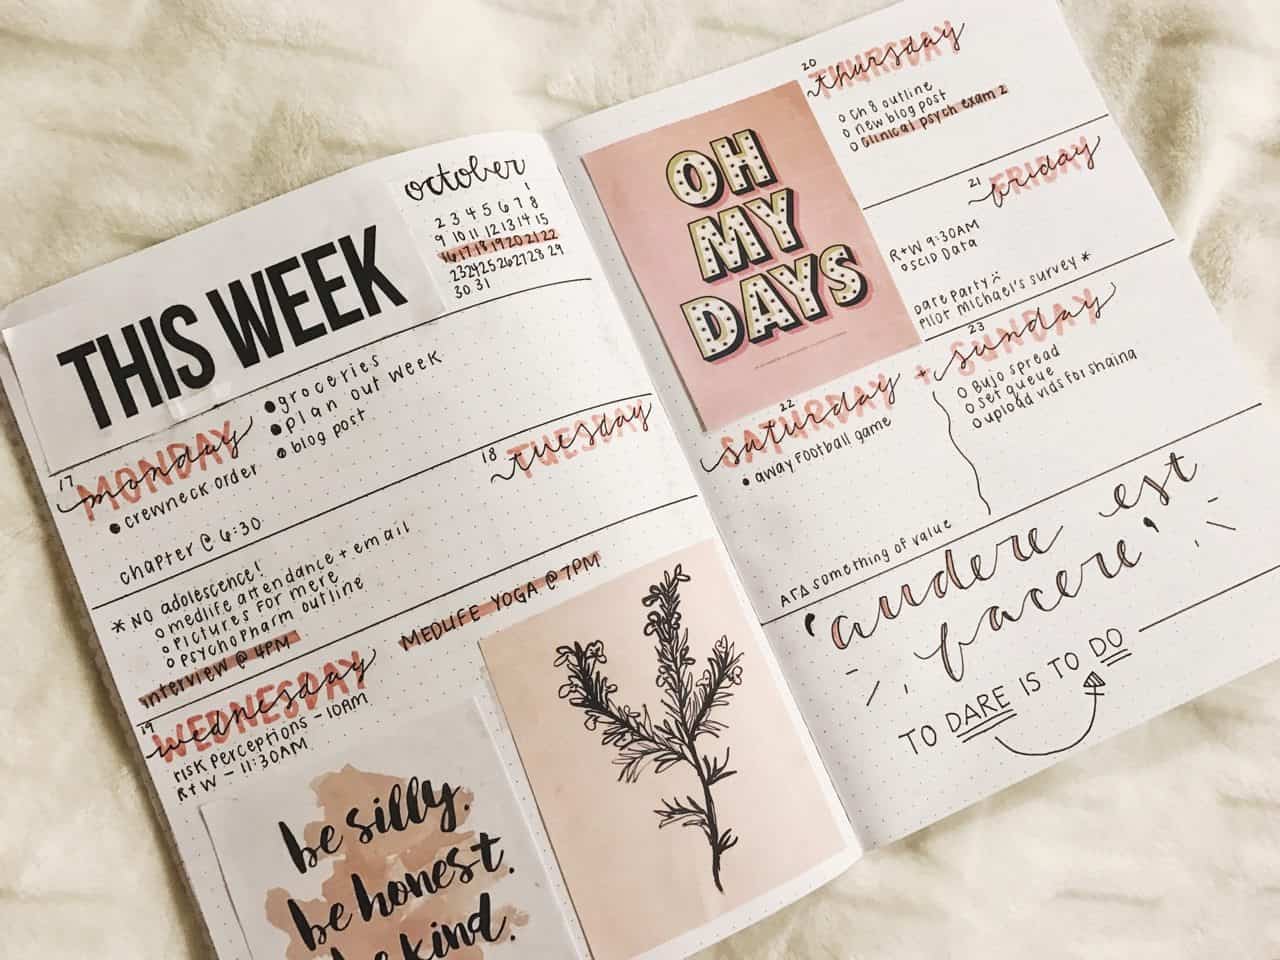 THIS WEEK
october
1
2 3 4 5 6 7 8
9 10 11 12 13 14 15
16 17 18 19 20 21 22
23 24 25 26 27 28 29
30 31
17
MONDAY
monday
• groceries
• plan out week
• blog post
• crewneck order
chapter @ 6:30
18
TUESDAY
tuesday
* NO adolescence!
o medlife attendance + email
o pictures for mere
o psychopharm outline
interview @ 4PM
MEDLIFE YOGA @ 7PM
19
WEDNESDAY
wednesday
risk perceptions - 10AM
R+W - 11:30AM
be silly.
be honest.
be kind.
OH
MY
DAYS
20
THURSDAY
thursday
o Ch 8 outline
o new blog post
o Clinical psych exam 2
21
FRIDAY
friday
R+W 9:30AM
o SCID Data
Dare party
Pilot Michael's survey *
22
SATURDAY
saturday
+
• away football game
AΓΔ something of value
23
SUNDAY
sunday
o Bujo spread
o set queue
o upload vids for shaina
'audere est
facere'
TO DARE IS TO DO